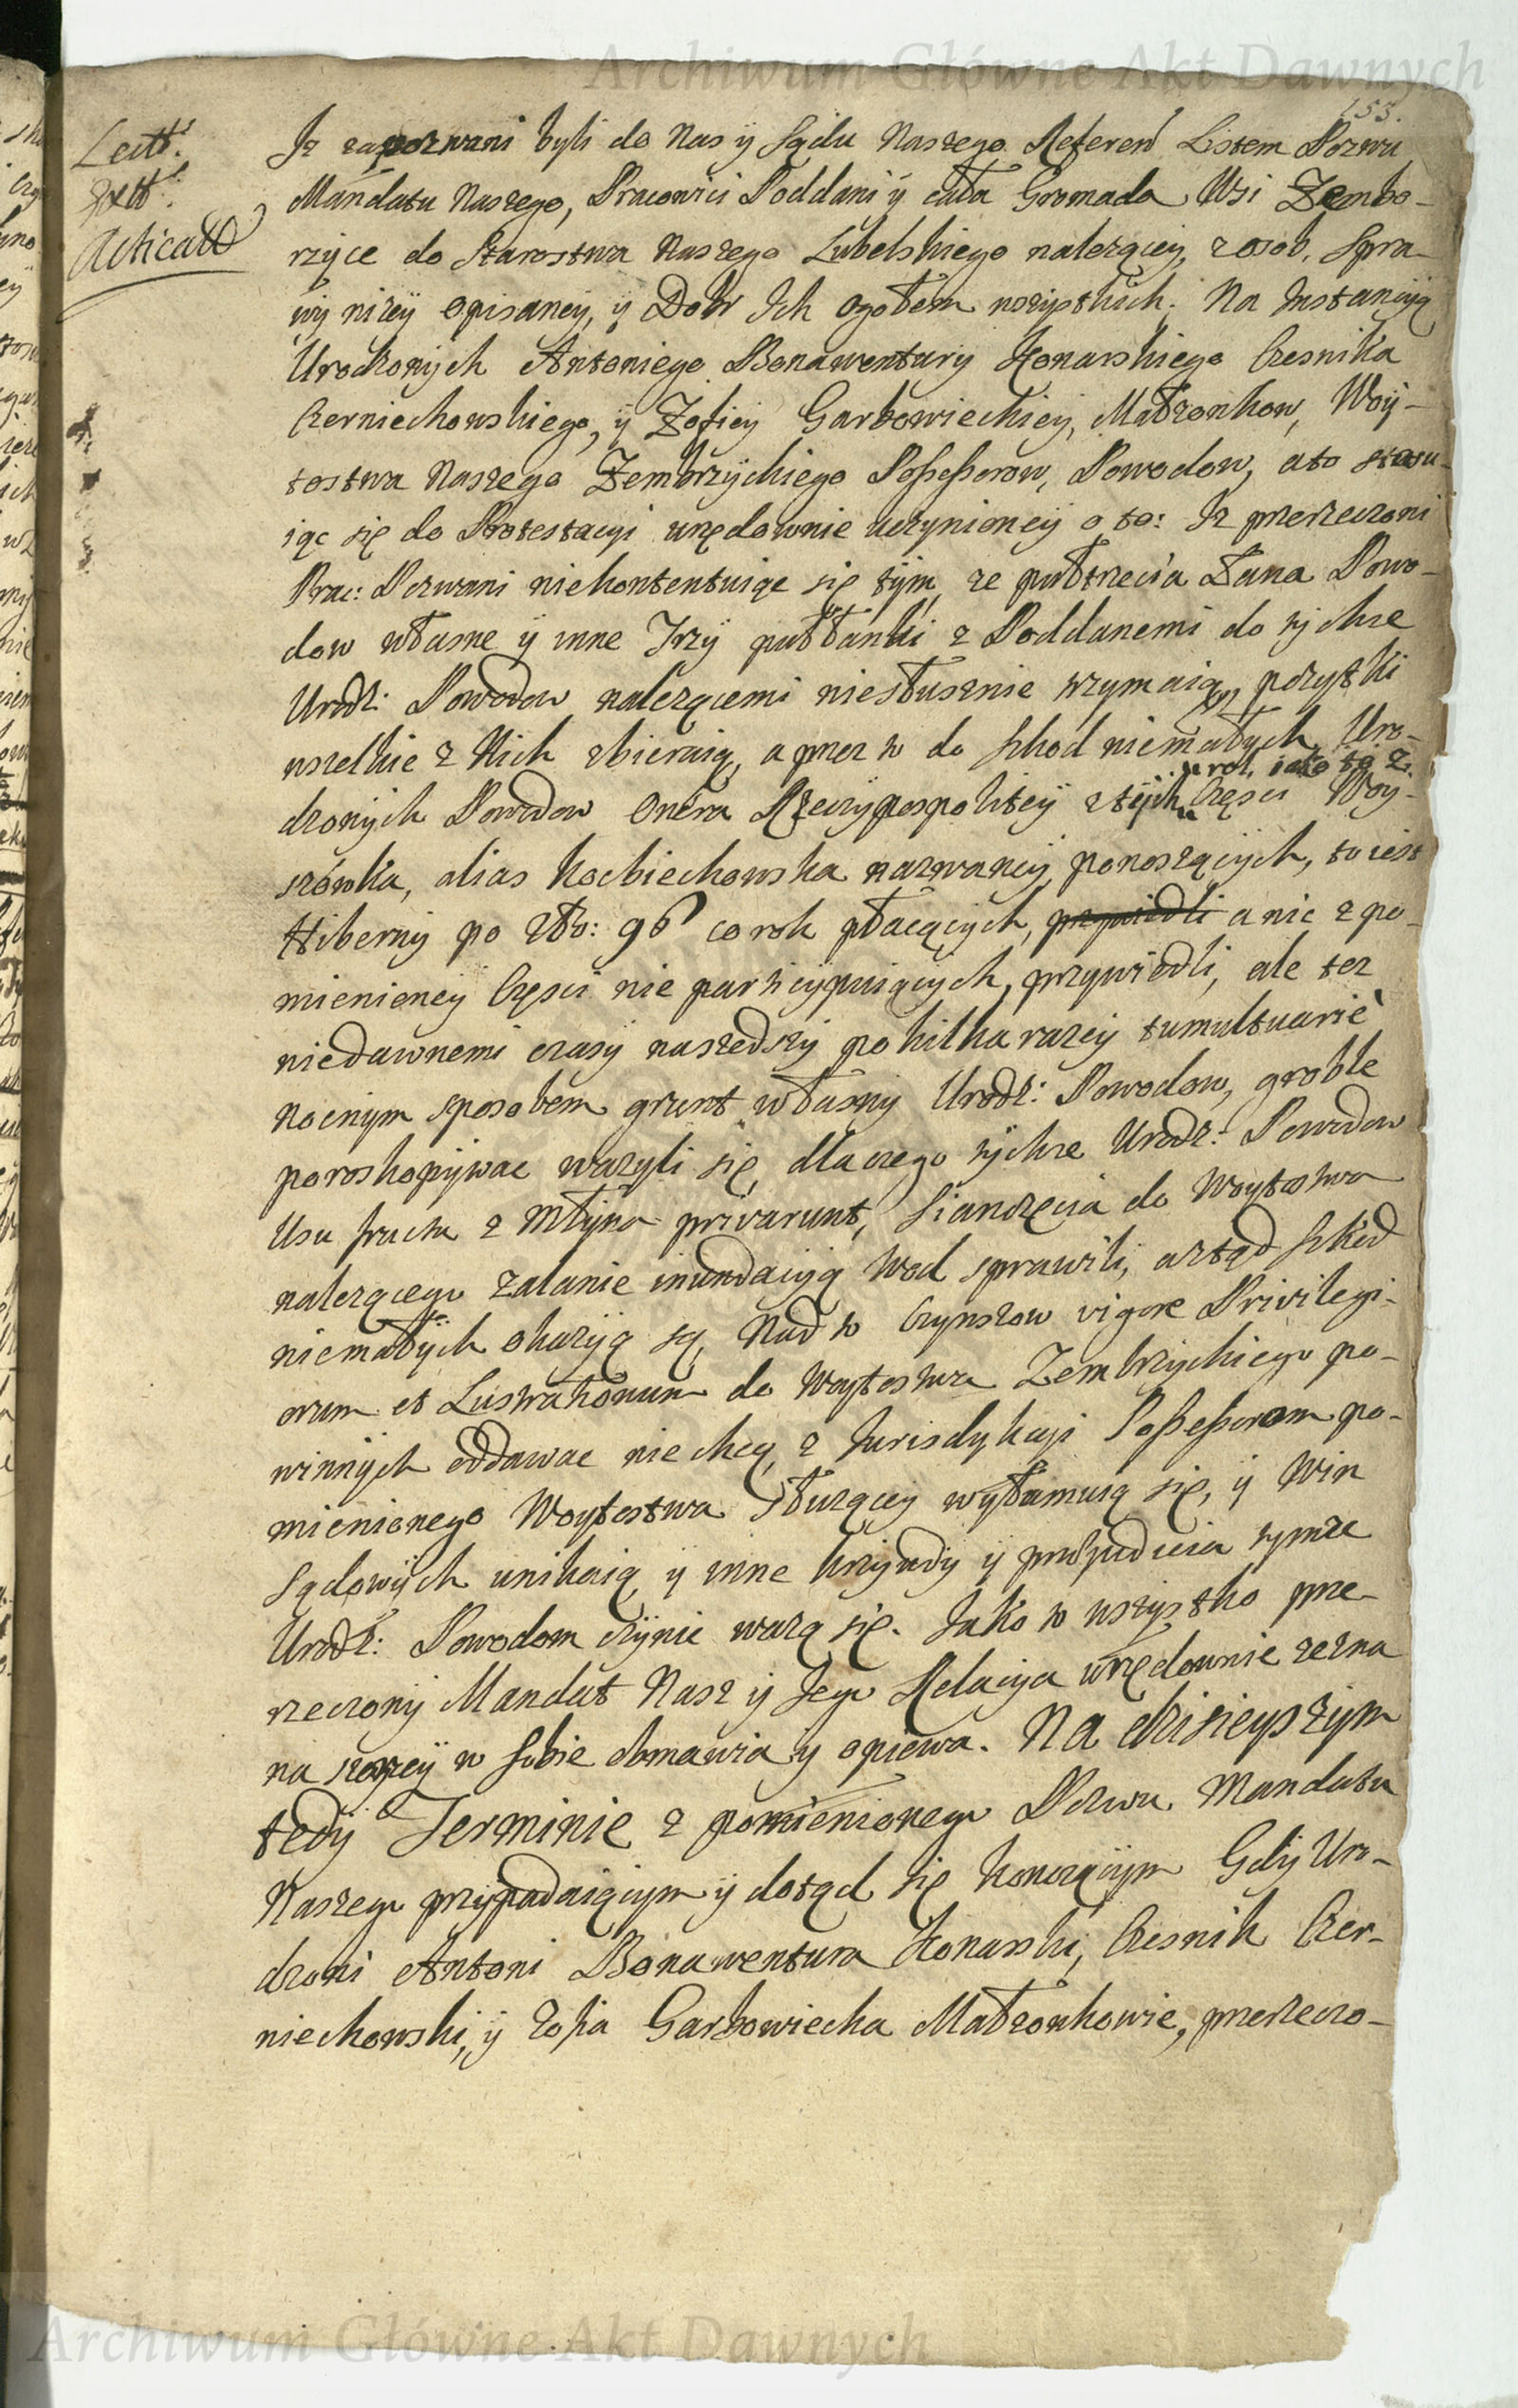 Archiwum Główne Akt Dawnych
153.
Lectt:
Acticatt
Iz zapozwani byli do Nas ÿ Sądu Naszego Referen Listem Pozwu
Mandatu Naszego, Pracowici Poddani ÿ cała Gromada Wsi Zembo-
rzÿce do Starostwa Naszego Lubelskiego nalezącey, z osob, Spra-
wÿ nizeÿ opisaneÿ, ÿ Dobr Ich ogołem wszÿstkich. Na Instancÿą
Urodzonÿch Antoniego Bonawenturÿ Konarskiego Czesnika
Czerniechowskiego, ÿ Zofieÿ Garbowieckieÿ, Małzonkow, Woÿ-
tostwa Naszego Zembrzÿckiego Possessorow, Powodow, ato stosu-
iąc się do Protestacÿi urzędownie uczÿnioneÿ o to: Iz przerzeczoni
Prac: Pozwani niekontentuiąc się tÿm, ze pułtrzecia Łana Powo-
dow własne ÿ inne Trzÿ pułłanki z Poddanemi do tÿchze
Urodz: Powodow nalezącemi niesłusznie trzÿmaią, pozytki
wszelkie z Nich zbieraią, a przez to do szkod niemałÿch Uro-
dzonÿch Powodow Onera Rzeczÿpospoliteÿ z tÿch rol, iako to z Częsci Woÿ-
szówka, alias Kocbiechowska nazwaneÿ, ponoszącÿch, to iest
Hibernÿ po Zło: 96 co rok płacącÿch, przywiedli a nic z po-
mienioneÿ Częsci nie particÿpuiącÿch, przÿwiedli, ale tez
niedawnemi czasÿ naszedszÿ po kilka razeÿ tumultuarie
Nocnÿm sposobem grunt własnÿ Urodz: Powodow, groble
poroskopÿwac wazyli się, dla czego tÿchze Urodz: Powodow
Usu fructu z Młÿna privarunt, Sianozęcia do Woytostwa
nalezącego zalanie inundacÿą Wod sprawili, aztąd Szkod
niemałÿch okazÿą są, Nad to Czynszow vigore Privilegi-
orum et Lustrationum do Woytostwa Zembrzÿckiego po-
winnÿch oddawac nie chcą, z Iurisdykcÿi Possessorom po-
mienionego Woytostwa słuzącey wÿłamuią się, ÿ Win
Sądowÿch unikaią ÿ inne krzÿwdÿ ÿ preÿudicia tymze
Urodz: Powodom czÿnic wazą się. Iako to wszystko prze-
rzeczonÿ Mandat Nasz ÿ Iego Relacÿa urzędownie zezna
na szerzeÿ w Sobie obmawia ÿ opiewa. Na dzisieyszÿm
tedÿ Terminie z pomienionego Pozwu Mandatu
Naszego przÿpadaiącÿm ÿ dotąd się konczącÿm Gdÿ Uro-
dzoni Antoni Bonawentura Konarski, Czesnik Czer-
niechowski, ÿ Zofia Garbowiecka Małzonkowie, przerzeczo-
Archiwum Główne Akt Dawnych